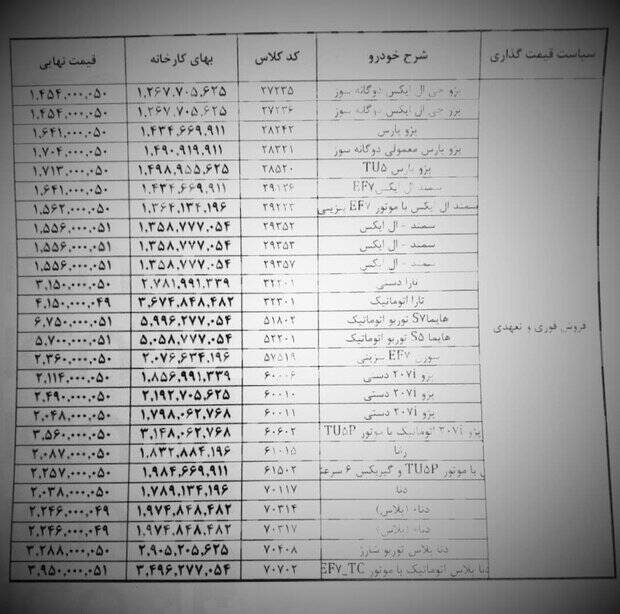 سیاست قیمت گذاری شرح خودرو کد کلاس بهای کارخانه قیمت نهایی
پژو جی ال ایکس دوگانه سوز ۲۷۲۳۵ ۱,۲۶۷,۷۰۵,۶۲۵ ۱,۴۵۴,۰۰۰,۰۵۰
پژو جی ال ایکس دوگانه سوز ۲۷۲۳۶ ۱,۲۶۷,۷۰۵,۶۲۵ ۱,۴۵۴,۰۰۰,۰۵۰
پژو پارس ۲۸۲۴۲ ۱,۴۳۴,۶۶۹,۹۱۱ ۱,۶۴۱,۰۰۰,۰۵۰
پژو پارس معمولی دوگانه سوز ۲۸۳۲۱ ۱,۴۹۰,۹۱۹,۹۱۱ ۱,۷۰۴,۰۰۰,۰۵۰
پژو پارس TU۵ ۲۸۵۲۰ ۱,۴۹۸,۹۵۵,۶۲۵ ۱,۷۱۳,۰۰۰,۰۵۰
سمند ال ایکس EF۷ ۲۹۱۳۶ ۱,۴۳۴,۶۶۹,۹۱۱ ۱,۶۴۱,۰۰۰,۰۵۰
سمند ال ایکس با موتور EF۷ بنزینی ۲۹۲۲۳ ۱,۳۶۴,۱۳۴,۱۹۶ ۱,۵۶۲,۰۰۰,۰۵۰
سمند - ال ایکس ۲۹۳۵۲ ۱,۳۵۸,۷۷۷,۰۵۴ ۱,۵۵۶,۰۰۰,۰۵۱
سمند - ال ایکس ۲۹۳۵۳ ۱,۳۵۸,۷۷۷,۰۵۴ ۱,۵۵۶,۰۰۰,۰۵۱
سمند - ال ایکس ۲۹۳۵۷ ۱,۳۵۸,۷۷۷,۰۵۴ ۱,۵۵۶,۰۰۰,۰۵۱
تارا دستی ۳۲۲۰۱ ۲,۷۸۱,۹۹۱,۳۳۹ ۳,۱۵۰,۰۰۰,۰۵۰
تارا اتوماتیک ۳۲۳۰۱ ۳,۶۷۴,۸۴۸,۴۸۲ ۴,۱۵۰,۰۰۰,۰۴۹
فروش فوری و تعهدی هایما S۷ توربو اتوماتیک ۵۱۸۰۲ ۵,۹۹۶,۲۷۷,۰۵۴ ۶,۷۵۰,۰۰۰,۰۵۱
هایما S۵ توربو اتوماتیک ۵۲۲۰۱ ۵,۰۵۸,۷۷۷,۰۵۴ ۵,۷۰۰,۰۰۰,۰۵۱
سورن EF۷ بنزینی ۵۷۵۱۹ ۲,۰۷۶,۶۳۴,۱۹۶ ۲,۳۶۰,۰۰۰,۰۵۰
پژو ۲۰۷i دستی ۶۰۰۰۶ ۱,۸۵۶,۹۹۱,۳۳۹ ۲,۱۱۴,۰۰۰,۰۵۰
پژو ۲۰۷i دستی ۶۰۰۱۰ ۲,۱۹۲,۷۰۵,۶۲۵ ۲,۴۹۰,۰۰۰,۰۵۰
پژو ۲۰۷i دستی ۶۰۰۱۱ ۱,۷۹۸,۰۶۲,۷۶۸ ۲,۰۴۸,۰۰۰,۰۵۰
پژو ۲۰۷i اتوماتیک با موتور TU۵P ۶۰۶۰۲ ۳,۱۴۸,۰۶۲,۷۶۸ ۳,۵۶۰,۰۰۰,۰۵۰
رانا ۶۱۰۱۵ ۱,۸۳۲,۸۸۴,۱۹۶ ۲,۰۸۷,۰۰۰,۰۵۰
با موتور TU۵P و گیربکس ۶ سرعته ۶۱۵۰۲ ۱,۹۸۴,۶۶۹,۹۱۱ ۲,۲۵۷,۰۰۰,۰۵۰
دنا ۷۰۱۱۷ ۱,۷۸۹,۱۳۴,۱۹۶ ۲,۰۳۸,۰۰۰,۰۵۰
دنا+ (پلاس) ۷۰۳۱۴ ۱,۹۷۴,۸۴۸,۴۸۲ ۲,۲۴۶,۰۰۰,۰۴۹
دنا+ (پلاس) ۷۰۳۱۷ ۱,۹۷۴,۸۴۸,۴۸۲ ۲,۲۴۶,۰۰۰,۰۴۹
دنا پلاس توربو شارژ ۷۰۴۰۸ ۲,۹۰۵,۲۰۵,۶۲۵ ۳,۲۸۸,۰۰۰,۰۵۰
دنا پلاس اتوماتیک با موتور EF۷_TC ۷۰۷۰۲ ۳,۴۹۶,۲۷۷,۰۵۴ ۳,۹۵۰,۰۰۰,۰۵۱